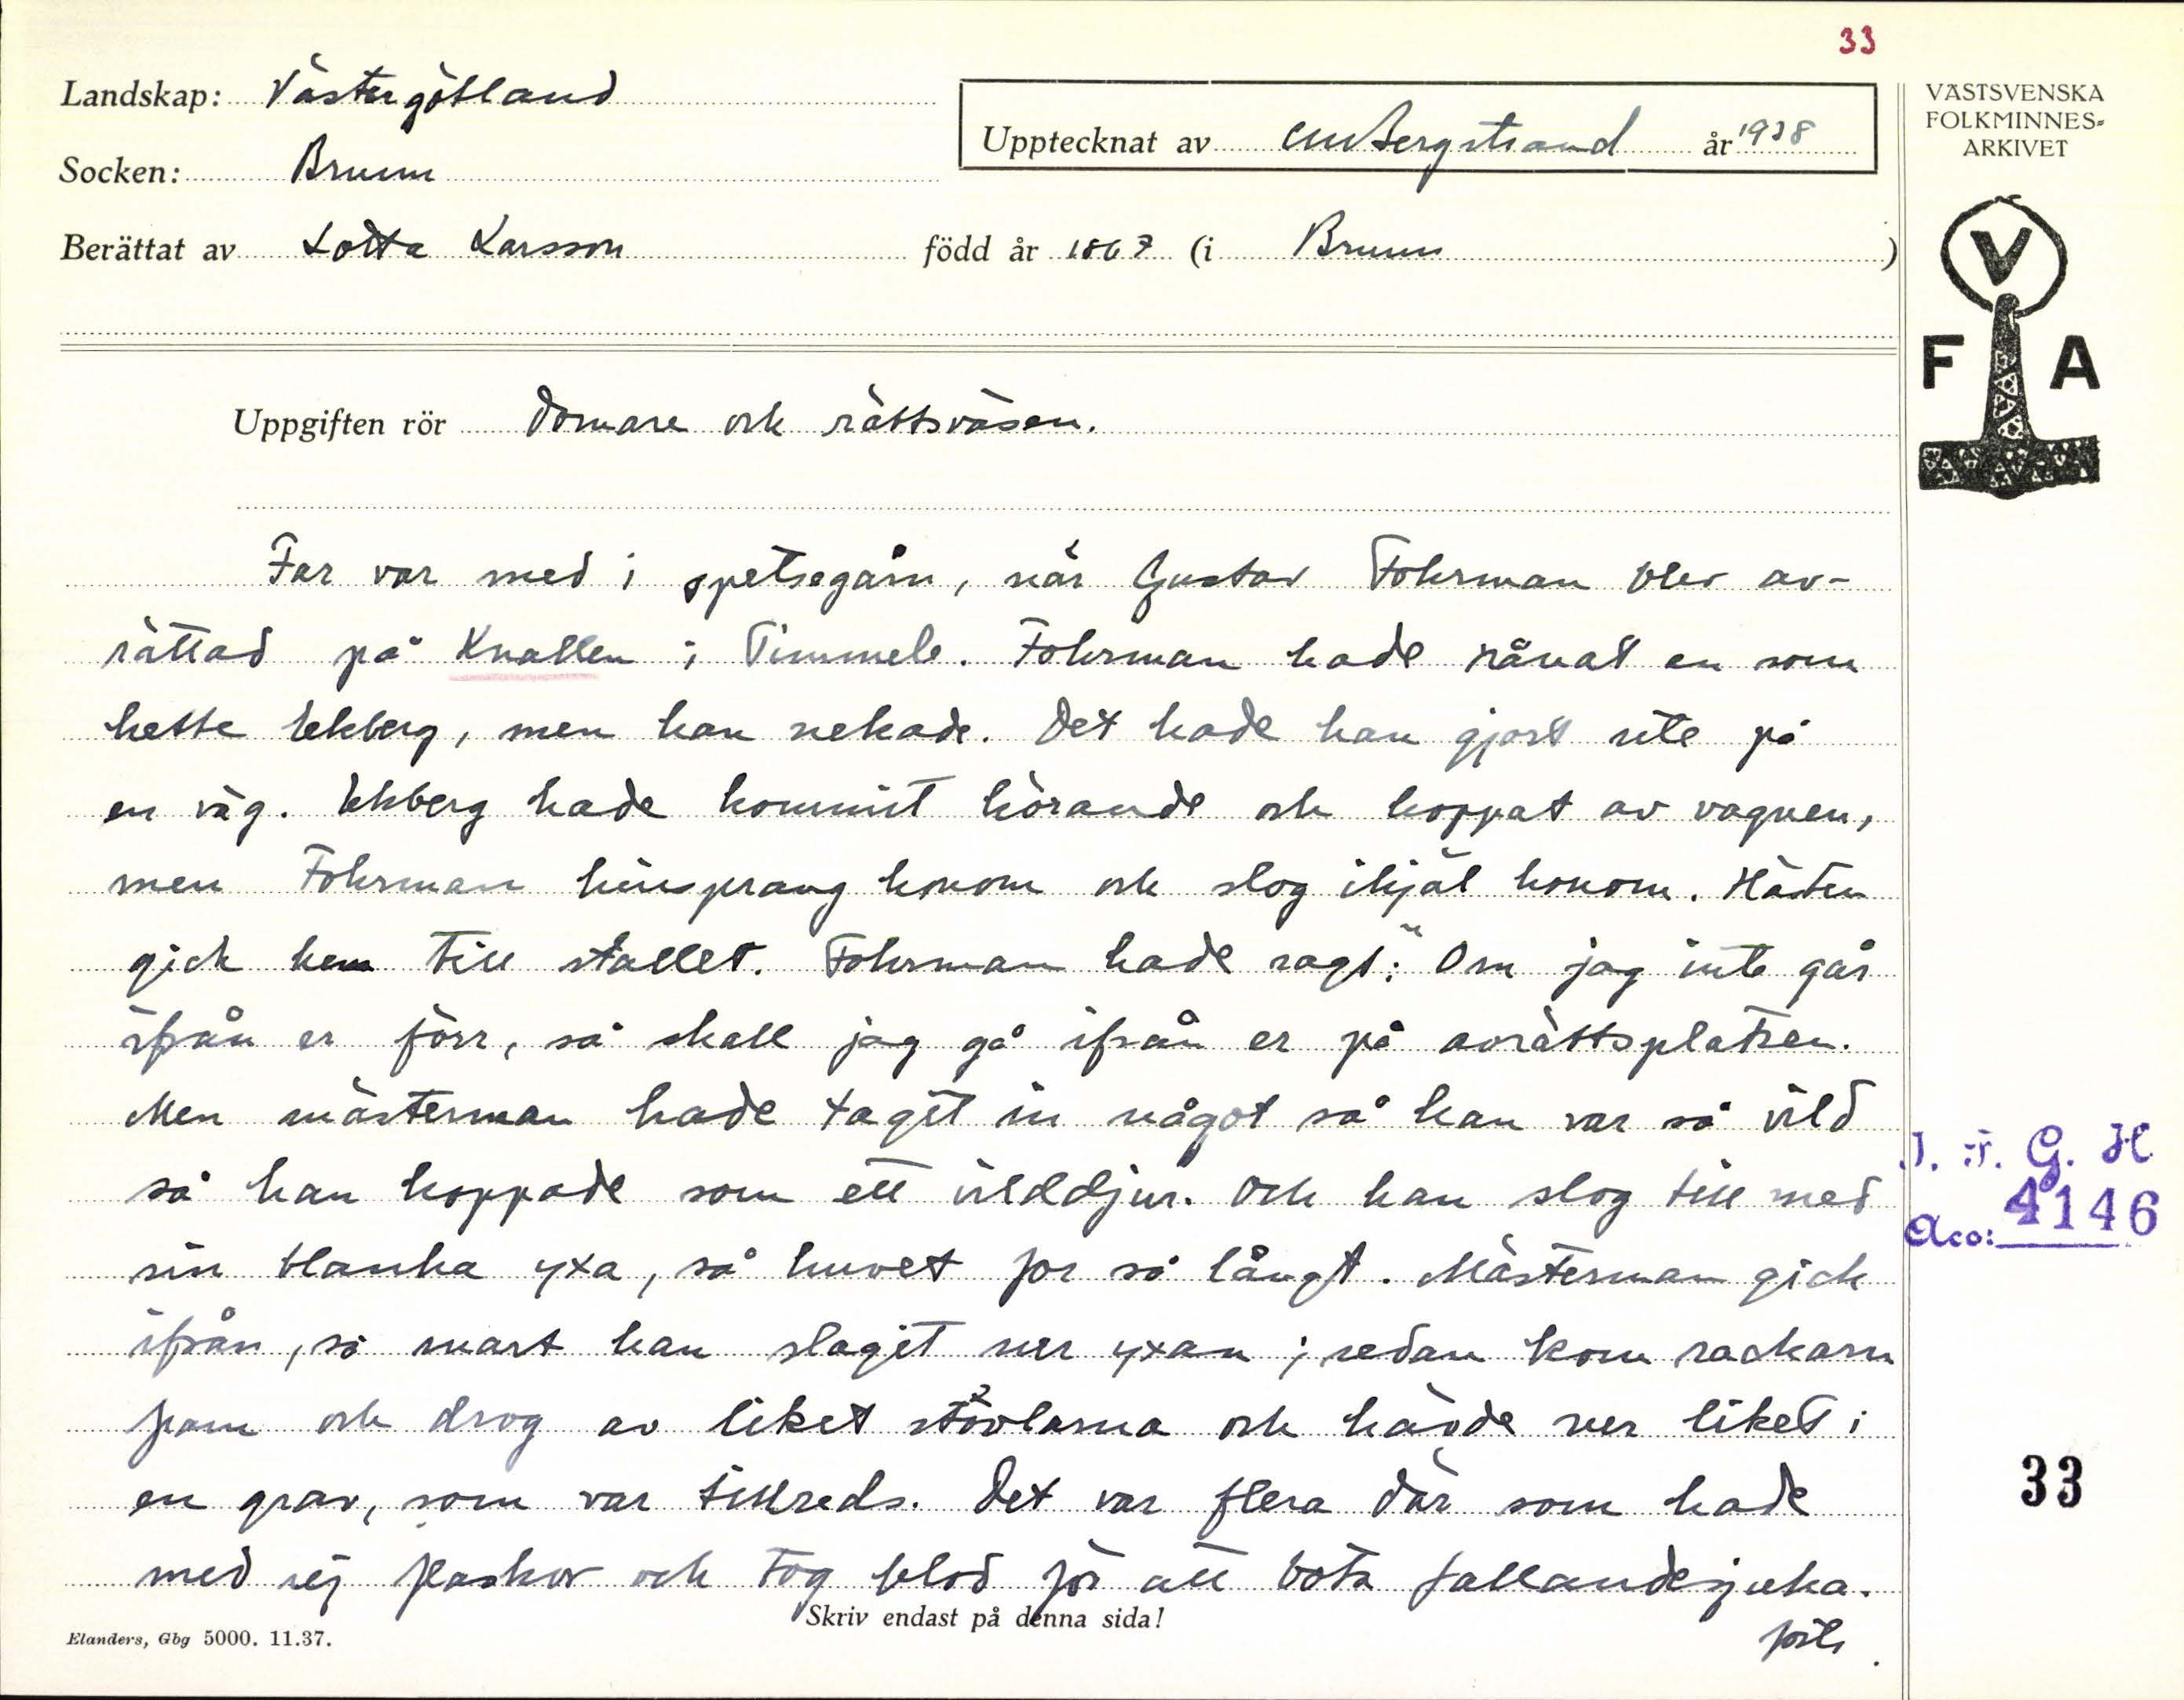 33
Landskap: Västergötland
Upptecknat av CM Bergstrand år 1938
VÄSTSVENSKA
FOLKMINNES-
ARKIVET
Socken: Brunn
Berättat av Lotta Larsson född år 1867 (i Brunn )
V
F A
Uppgiften rör Domare och rättsväsen.
Far var med i spetsegårn, når Gustav Fohrman blev av-
rättad på Knallen i Timmele. Fohrman hade rånat en som
hette Ekberg, men han nekade. Det hade han gjort ute på
en väg. Ekberg hade kommit körande och hoppat av vagnen,
men Fohrman hinsprang honom och slog ihjäl honom. Hästen
gick hem till stallet. Fohrman hade sagt: "Om jag inte går
ifrån er förr, så skall jag gå ifrån er på avrättsplatsen.
Men mästerman hade taget in något så han var så vild
så han hoppade som ett vilddjur. Och han slog till med
sin blanka yxa, så huvet for så långt. Mästerman gick
ifrån, så snart han slaget ner yxan; sedan kom rackarn
fram och drog av liket stövlarna och hävde ner liket i
en grav, som var tillreds. Det var flera där som hade
med sej flaskor och tog blod för att bota fallandesjuka.
forts.
Skriv endast på denna sida!
Elanders, Gbg 5000. 11.37.
I. F. G. H
Acc: 4146
33